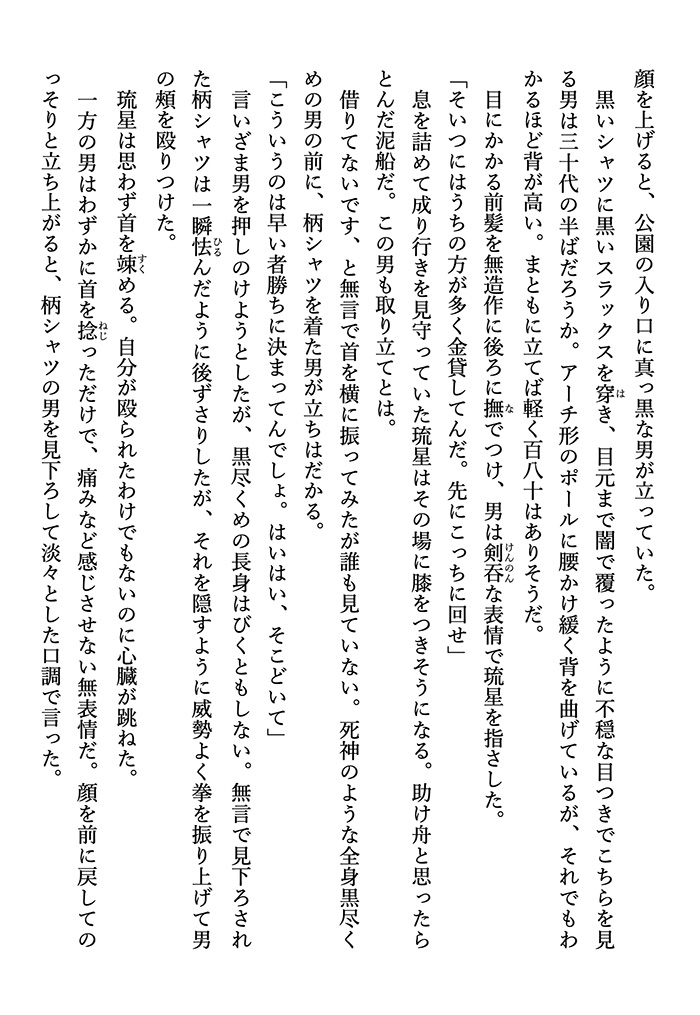 顔を上げると、公園の入り口に真っ黒な男が立っていた。
　黒いシャツに黒いスラックスを穿き、目元まで闇で覆ったように不穏な目つきでこちらを見
る男は三十代の半ばだろうか。アーチ形のポールに腰かけ緩く背を曲げているが、それでもわ
かるほど背が高い。まともに立てば軽く百八十はありそうだ。
　目にかかる前髪を無造作に後ろに撫でつけ、男は剣呑な表情で琉星を指さした。
「そいつにはうちの方が多く金貸してんだ。先にこっちに回せ」
　息を詰めて成り行きを見守っていた琉星はその場に膝をつきそうになる。助け舟と思ったら
とんだ泥船だ。この男も取り立てとは。
　借りてないです、と無言で首を横に振ってみたが誰も見ていない。死神のような全身黒尽く
めの男の前に、柄シャツを着た男が立ちはだかる。
「こういうのは早い者勝ちに決まってんでしょ。はいはい、そこどいて」
　言いざま男を押しのけようとしたが、黒尽くめの長身はびくともしない。無言で見下ろされ
た柄シャツは一瞬怯んだように後ずさりしたが、それを隠すように威勢よく拳を振り上げて男
の頰を殴りつけた。
　琉星は思わず首を竦める。自分が殴られたわけでもないのに心臓が跳ねた。
　一方の男はわずかに首を捻っただけで、痛みなど感じさせない無表情だ。顔を前に戻しての
っそりと立ち上がると、柄シャツの男を見下ろして淡々とした口調で言った。